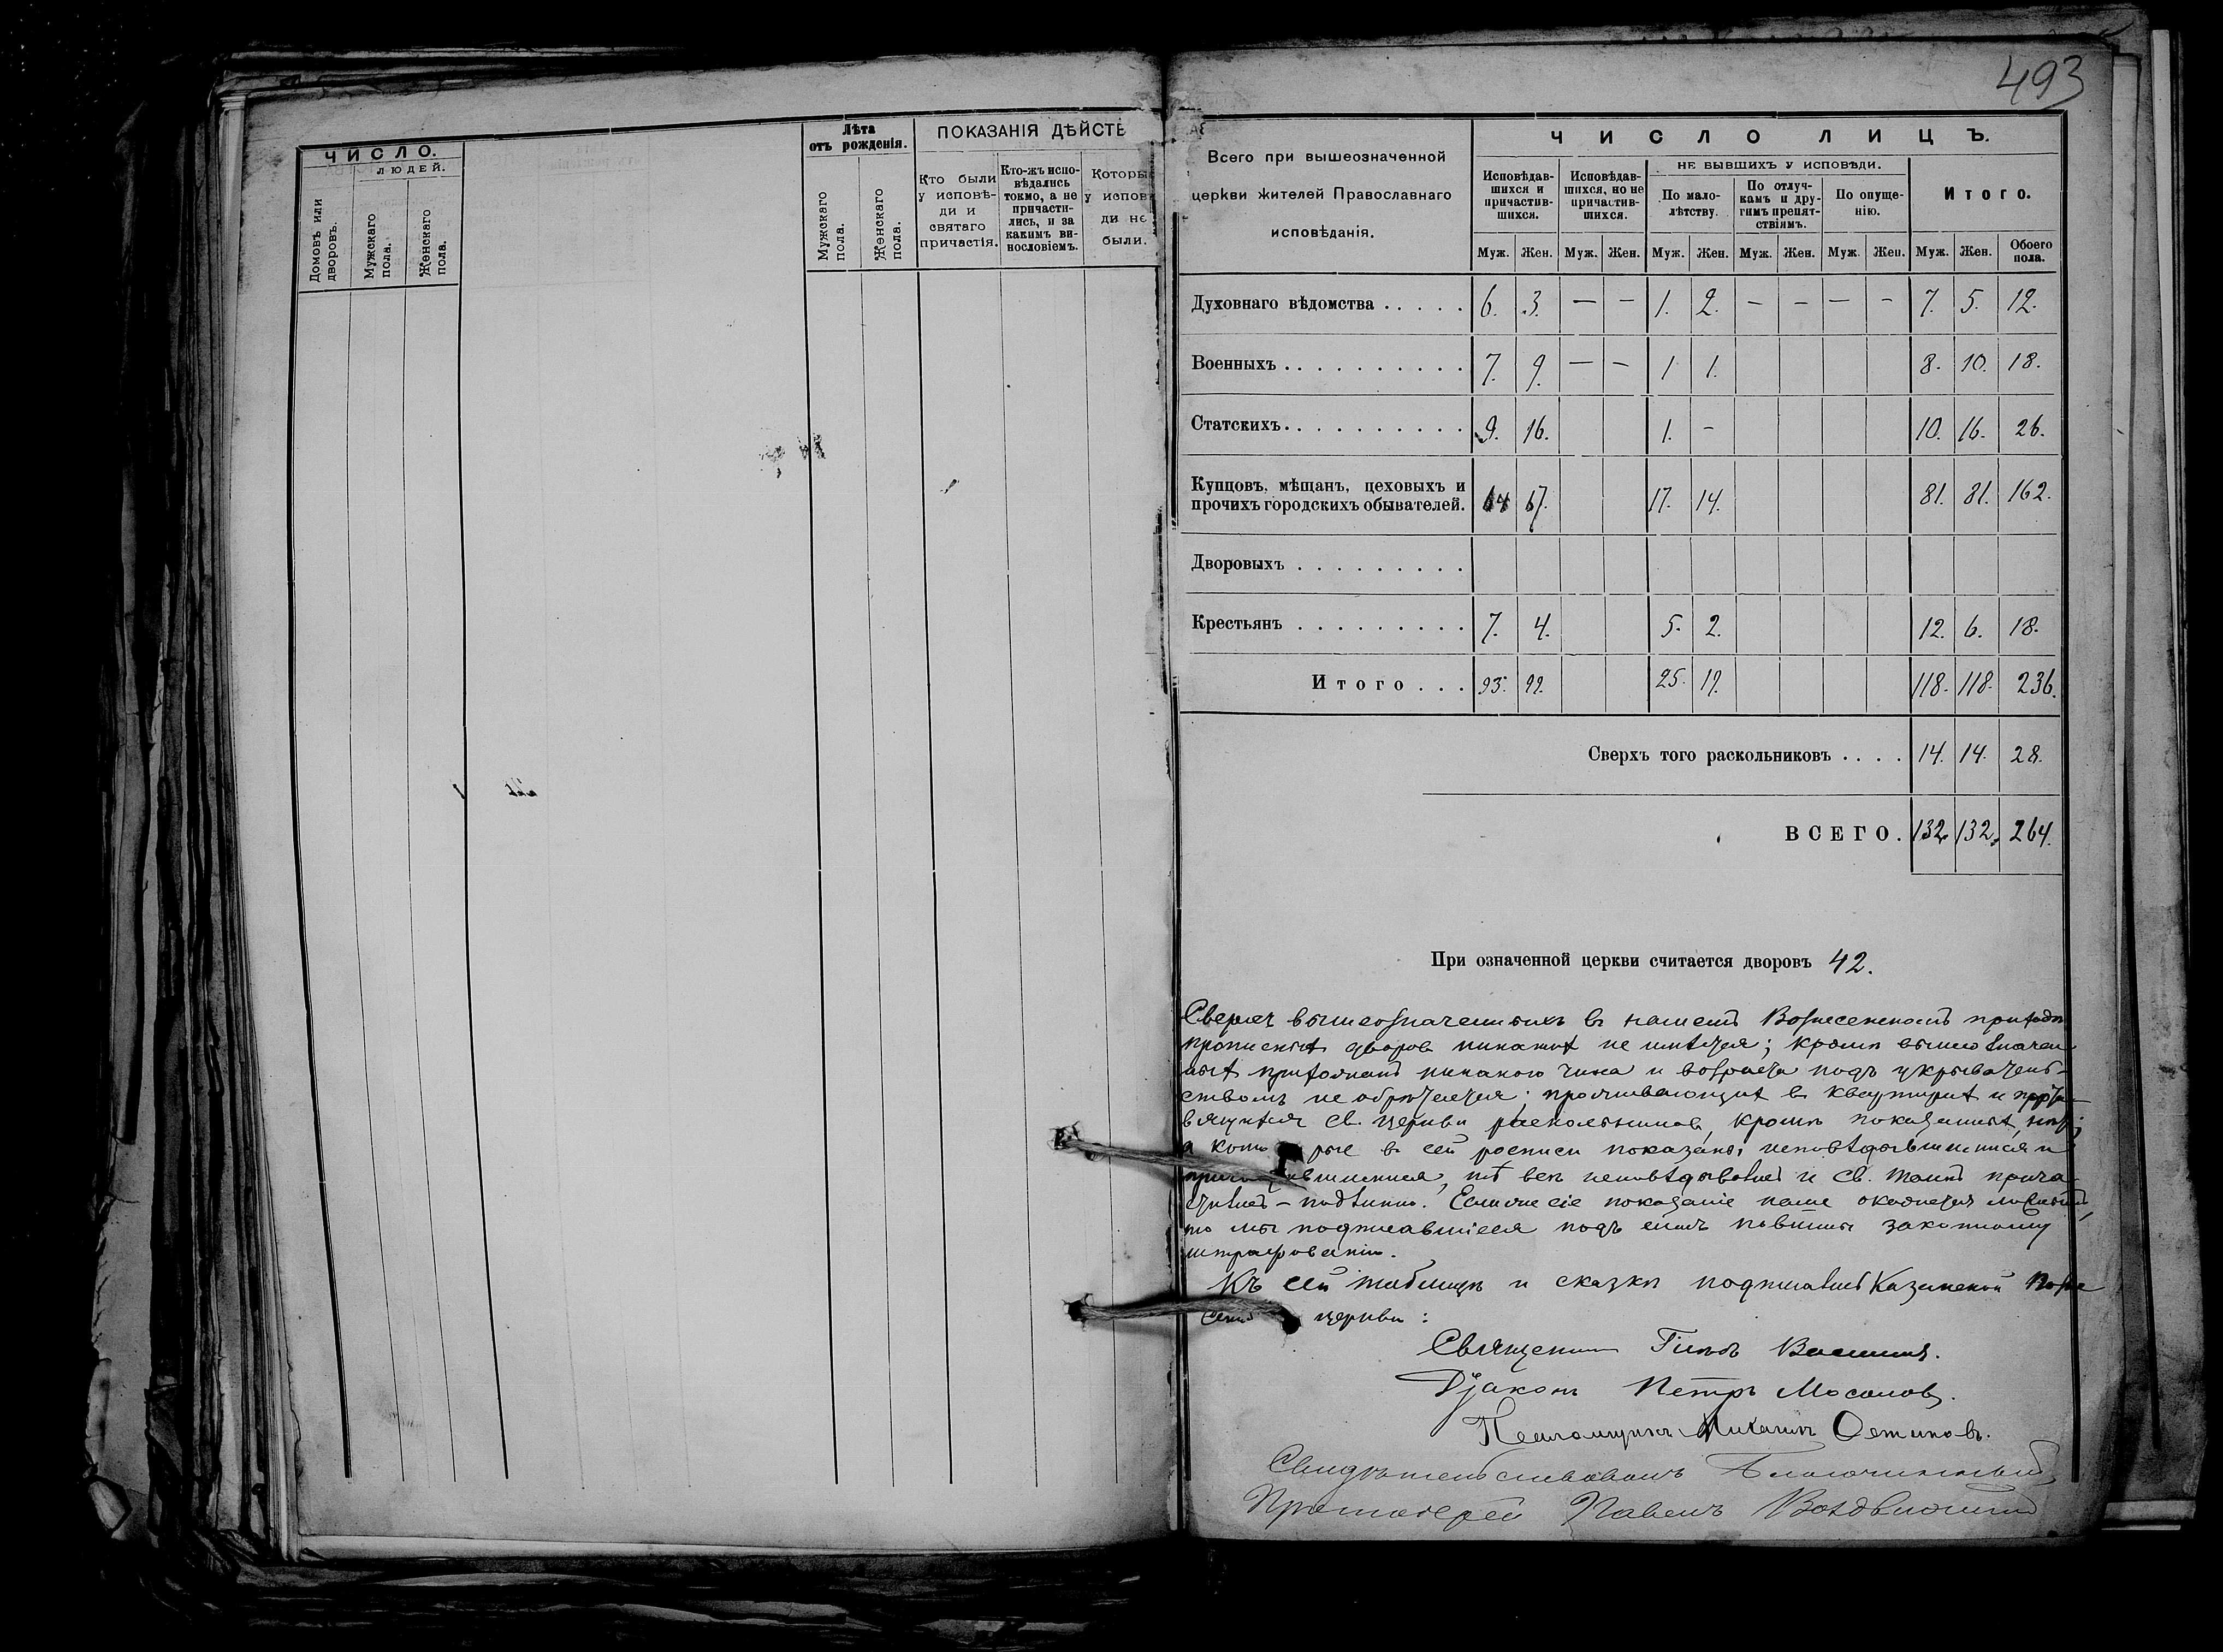 493
ЧИСЛО.
ЛЮДЕЙ.
Домовъ или дворовъ.
Мужскаго пола.
Женскаго пола.
Лѣта
отъ рожденія.
Мужскаго пола.
Женскаго пола.
ПОКАЗАНІЯ ДѢЙСТВ
Кто были
у исповѣ-
ди и
святаго
причастія.
Кто-жъ испо-
вѣдались
токмо, а не
причасти-
лись, и за
какимъ ви-
нословіемъ.
Которы
у испов
ди не
были.
Всего при вышеозначенной
церкви жителей Православнаго
исповѣданія.
ЧИСЛО ЛИЦЪ.
Исповѣдав-
шихся и
причастив-
шихся.
Исповѣдав-
шихся, но не
причастив-
шихся.
НЕ БЫВШИХЪ У ИСПОВѢДИ.
По мало-
лѣтству.
По отлуч-
камъ и дру-
гимъ препят-
ствіямъ.
По опуще-
нію.
Итого.
Муж. Жен. Муж. Жен. Муж. Жен. Муж. Жен. Муж. Жен. Муж. Жен. Обоего пола.
Духовнаго вѣдомства . . . . . 6. 3. — — 1. 2. — — — — 7. 5. 12.
Военныхъ . . . . . . . . . . 7. 9. — — 1 1. 8. 10. 18.
Статскихъ . . . . . . . . . . 9. 16. 1. - 10. 16. 26.
Купцовъ, мѣщанъ, цеховыхъ и
прочихъ городскихъ обывателей. 64 67. 17. 14. 81. 81. 162.
Дворовыхъ . . . . . . . . .
Крестьянъ . . . . . . . . . 7. 4. 5. 2. 12. 6. 18.
Итого . . . 93. 99. 25. 19. 118. 118. 236.
Сверхъ того раскольниковъ . . . . 14. 14. 28.
ВСЕГО. 132. 132. 264.
При означенной церкви считается дворовъ 42.
Сверхъ вышеозначенныхъ въ нашемъ Вознесенскомъ приходѣ
прописныхъ дворовъ никакихъ не имѣется; кромѣ вышеозначен
ныхъ прихожанъ никакого чина и возраста подъ укрыватель-
ствомъ не обрѣтается; проживающихъ въ квартирахъ и
св. церкви раскольниковъ, кромѣ показанныхъ, нѣтъ;
а которые въ сей росписи показаны исповѣдавшимися и
причастившимися, тѣ всѣ исповѣдывались и св. таинъ прича-
щались – подлинно. Если же сіе показаніе наше окажется ложнымъ,
то мы подписавшіеся подъ симъ повинны законному
штрафованію.
Къ сей таблицѣ и сказкѣ подписались Казанской Возне
сенской церкви:
Священникъ
Діаконъ Петръ Мосолов.
Псаломщикъ Михаилъ Осиповъ.
Свидѣтельствовалъ Благочинный,
Протоіерей Павелъ Воздвиженскій